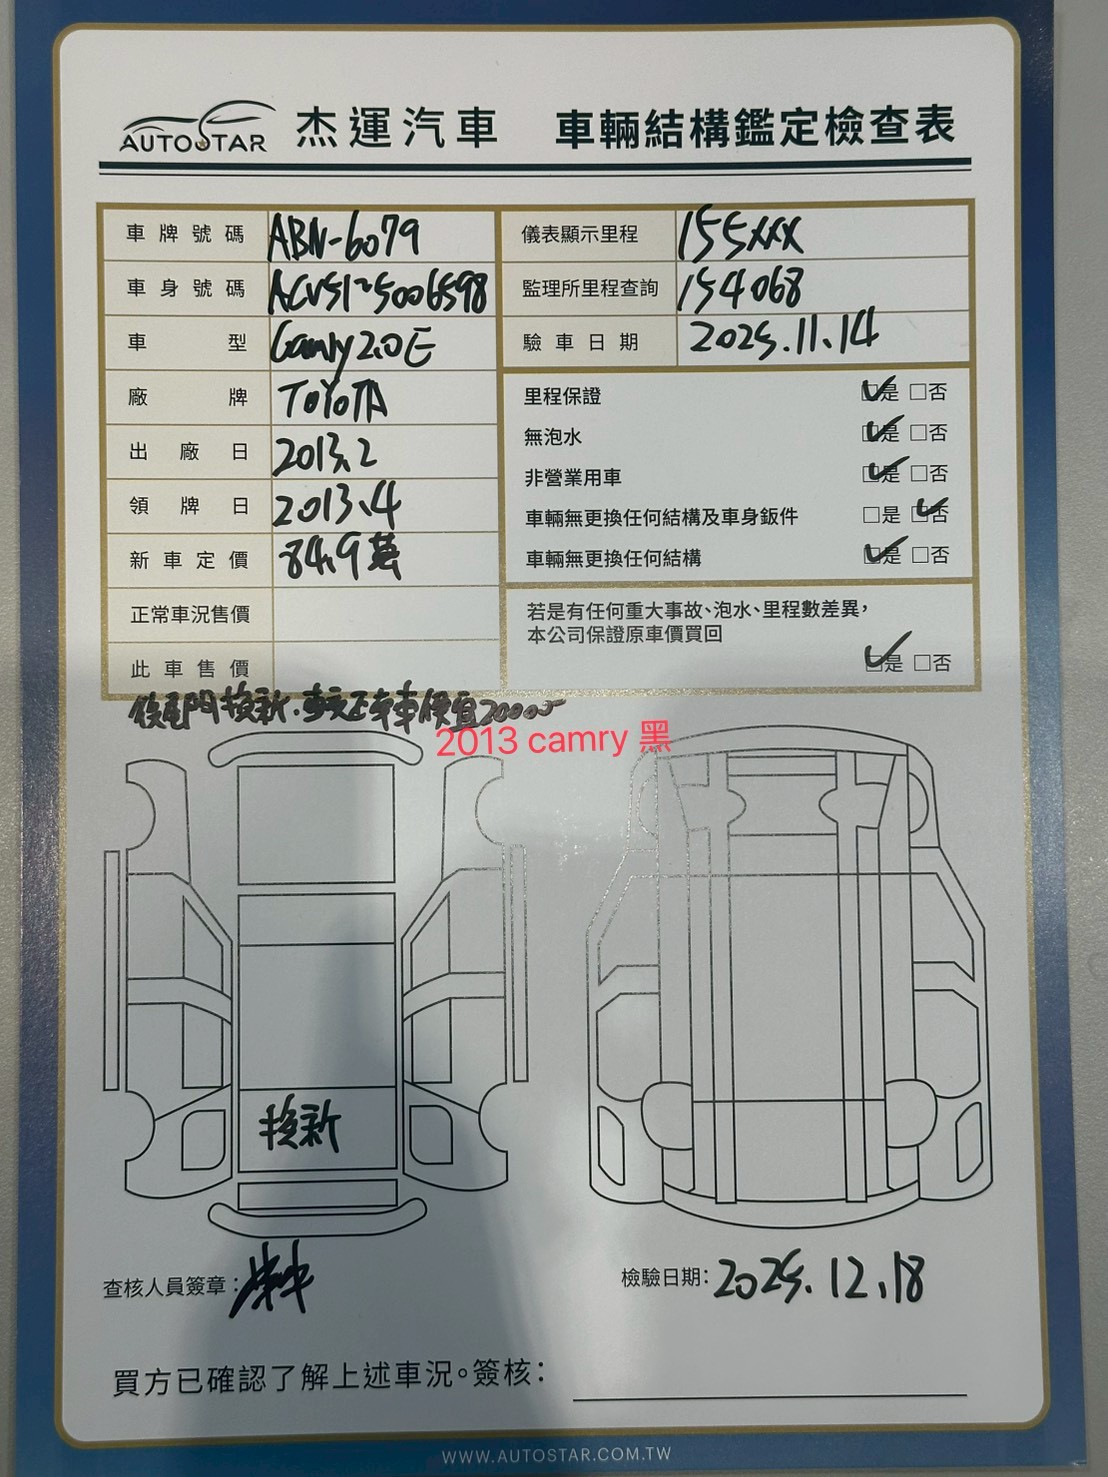 AUTOSTAR 杰運汽車 車輛結構鑑定檢查表
車牌號碼 ABN-6079
車身號碼 ACV51-5006598
車型 Camry 2.0E
廠牌 TOYOTA
出廠日 2013.2
領牌日 2013.4
新車定價 84.9萬
正常車況售價
此車售價
儀表顯示里程 155xxx
監理所里程查詢 154068
驗車日期 2025.11.14
里程保證 ☑是 □否
無泡水 ☑是 □否
非營業用車 ☑是 □否
車輛無更換任何結構及車身鈑件 □是 ☑否
車輛無更換任何結構 ☑是 □否
若是有任何重大事故、泡水、里程數差異,
本公司保證原車價買回
☑是 □否
後尾門換新. 較正常車便宜20000
2013 camry 黑
換新
查核人員簽章:
檢驗日期: 2025.12.18
買方已確認了解上述車況。簽核:
WWW.AUTOSTAR.COM.TW